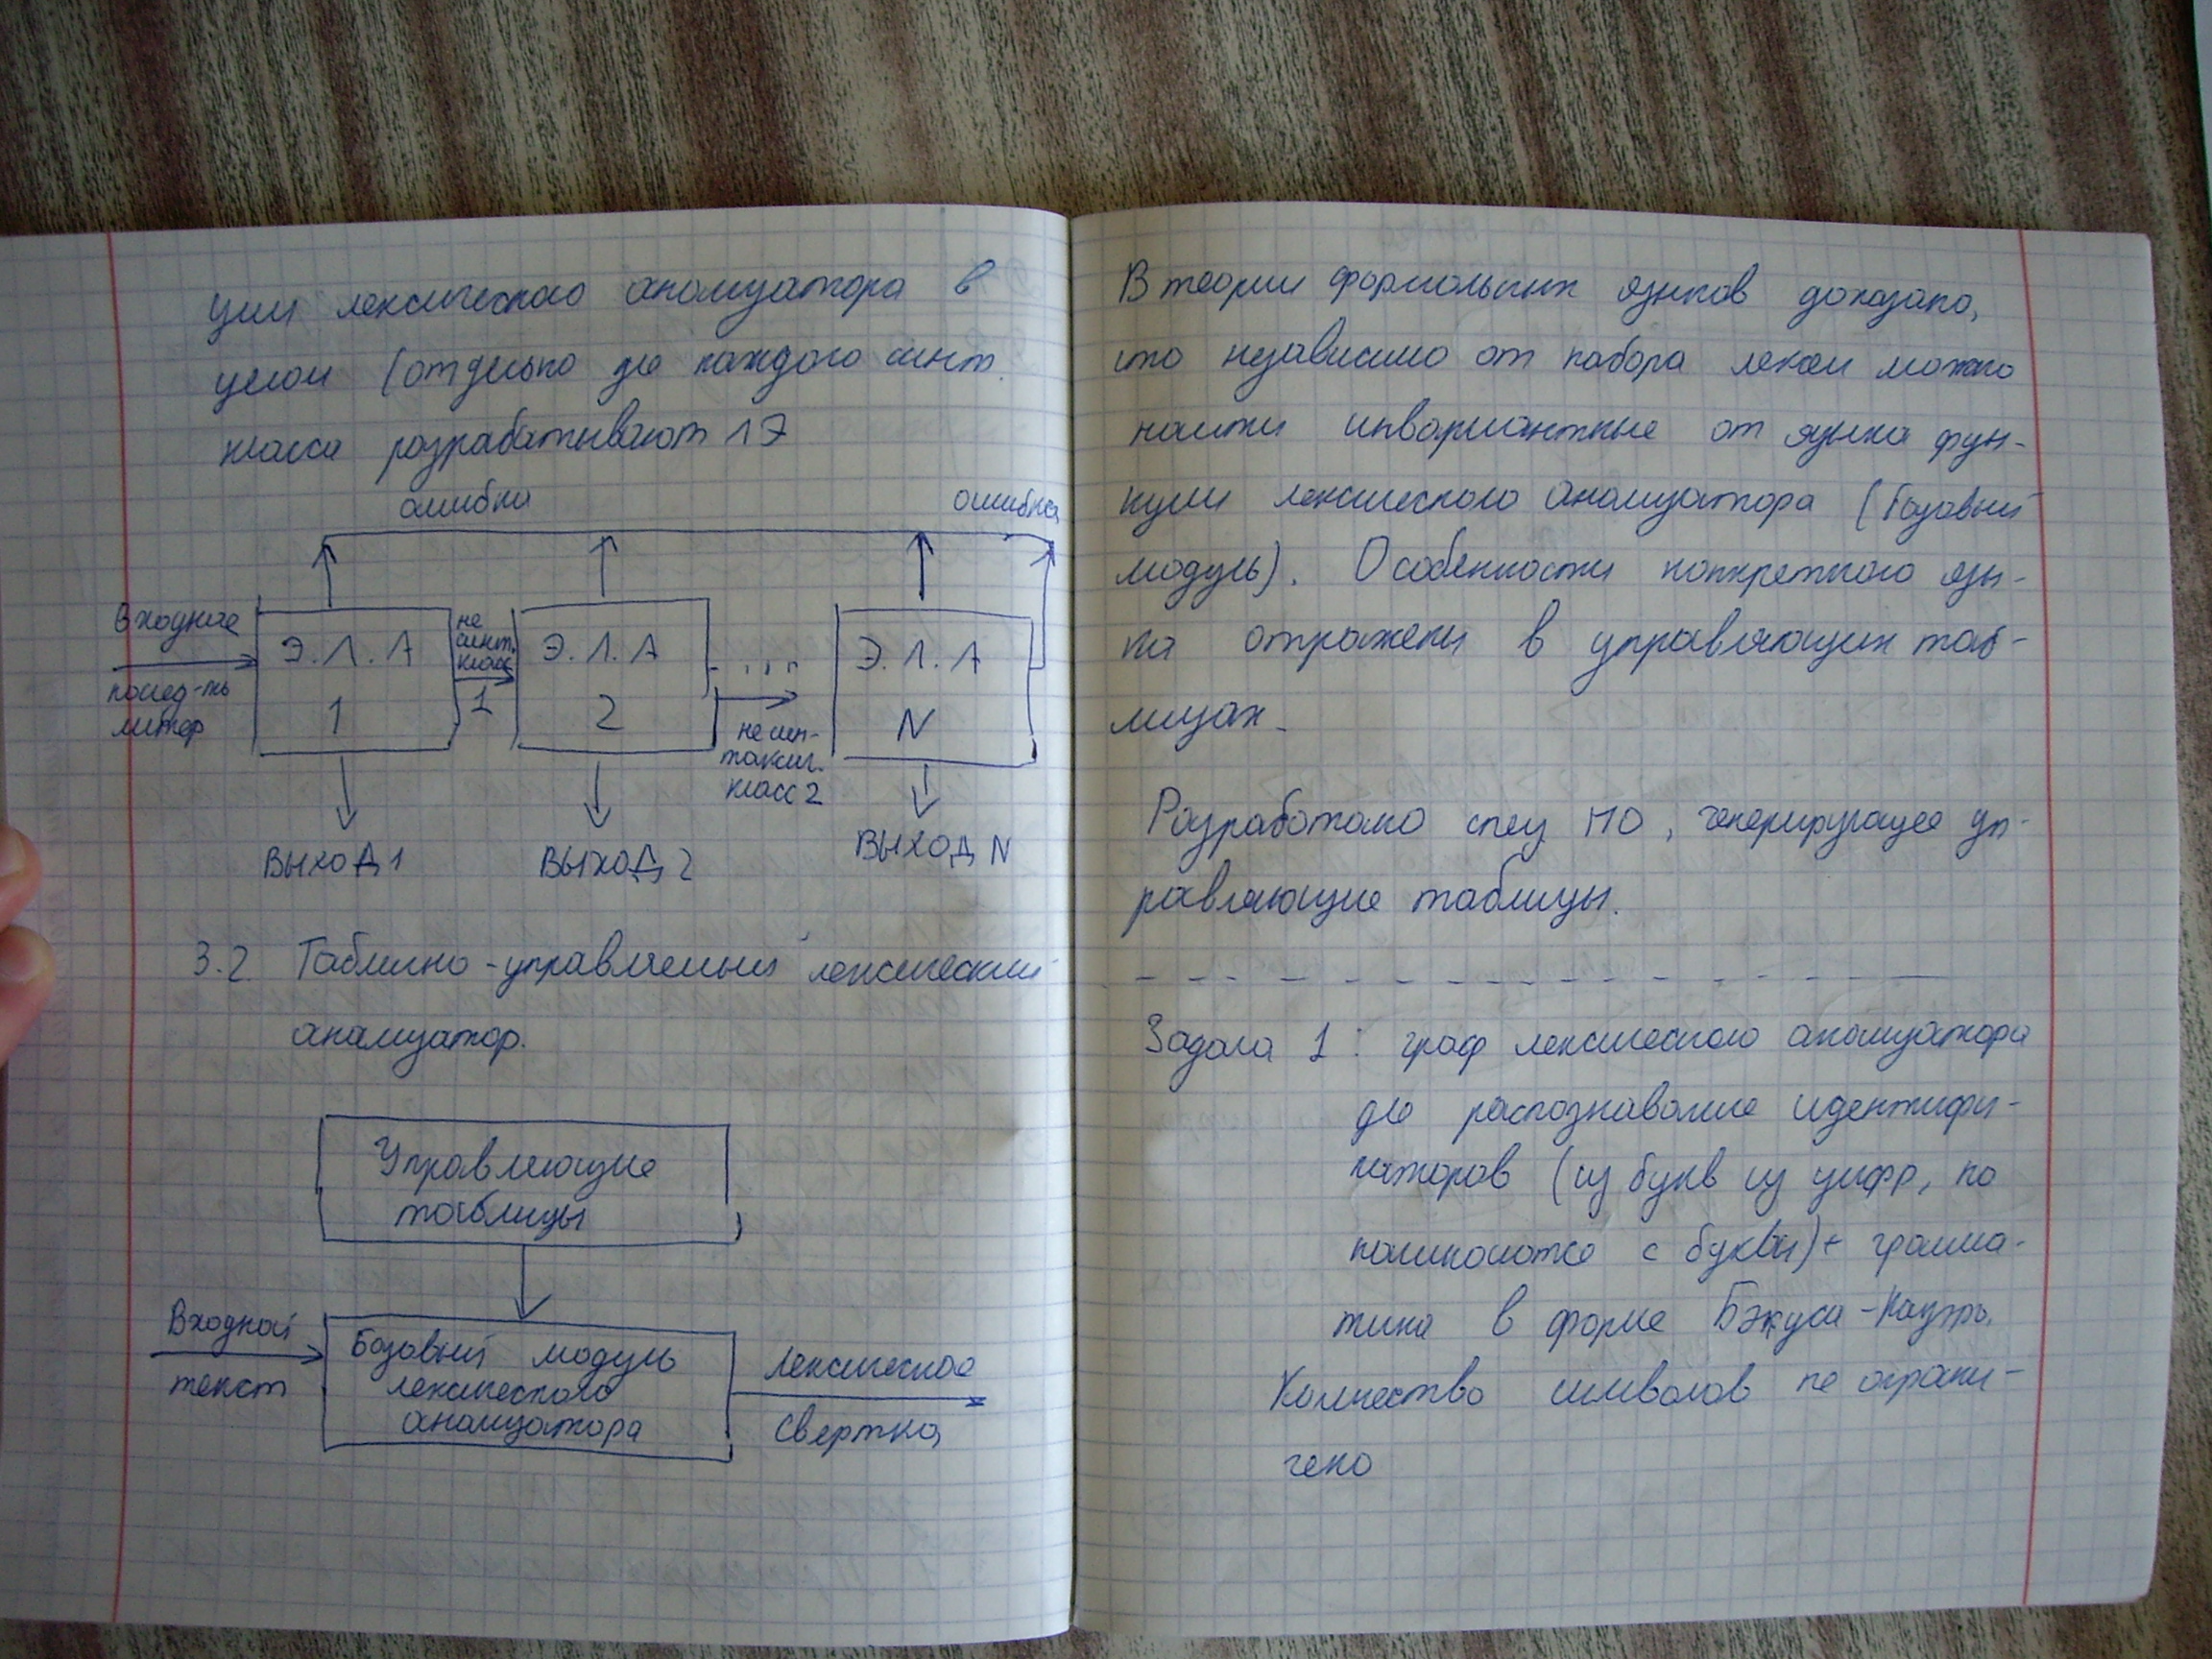 ции лексического анализатора в
целом (отдельно для каждого синт.
класса разрабатывают 1 Э
ошибка
ошибка
Входные
послед-ть
литер
Э.Л.А
1
не
синт.
класс
1
Э.Л.А
2
. . . .
не син-
таксич.
класс 2
Э.Л.А
N
ВЫХОД 1
ВЫХОД 2
ВЫХОД N
3.2 Таблично-управляемый лексический
анализатор.
Управляющие
таблицы
Входной
текст
Базовый модуль
лексического
анализатора
Лексическая
свертка
В теории формальных языков доказано,
что независимо от набора лексем можно
найти инвариантные от языка фун-
кции лексического анализатора (базовый
модуль). Особенности конкретного язы-
ка отражены в управляющих таб-
лицах.
Разработано спец ПО, генерирующее уп-
равляющие таблицы.
Задача 1: граф лексического анализатора
для распознавание идентифи-
каторов (из букв из цифр, но
начинается с буквы) + грамма-
тика в форме Бэкуса-Наура.
Количество символов не ограни-
чено